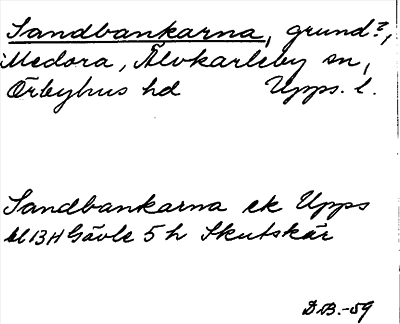 Sandbankarna, grund?,
Medora, Älvkarleby sn,
Örbyhus hd Upps. l.
Sandbankarna ek Upps
bl 13H Gävle 5 h Skutskär
D.B.-59